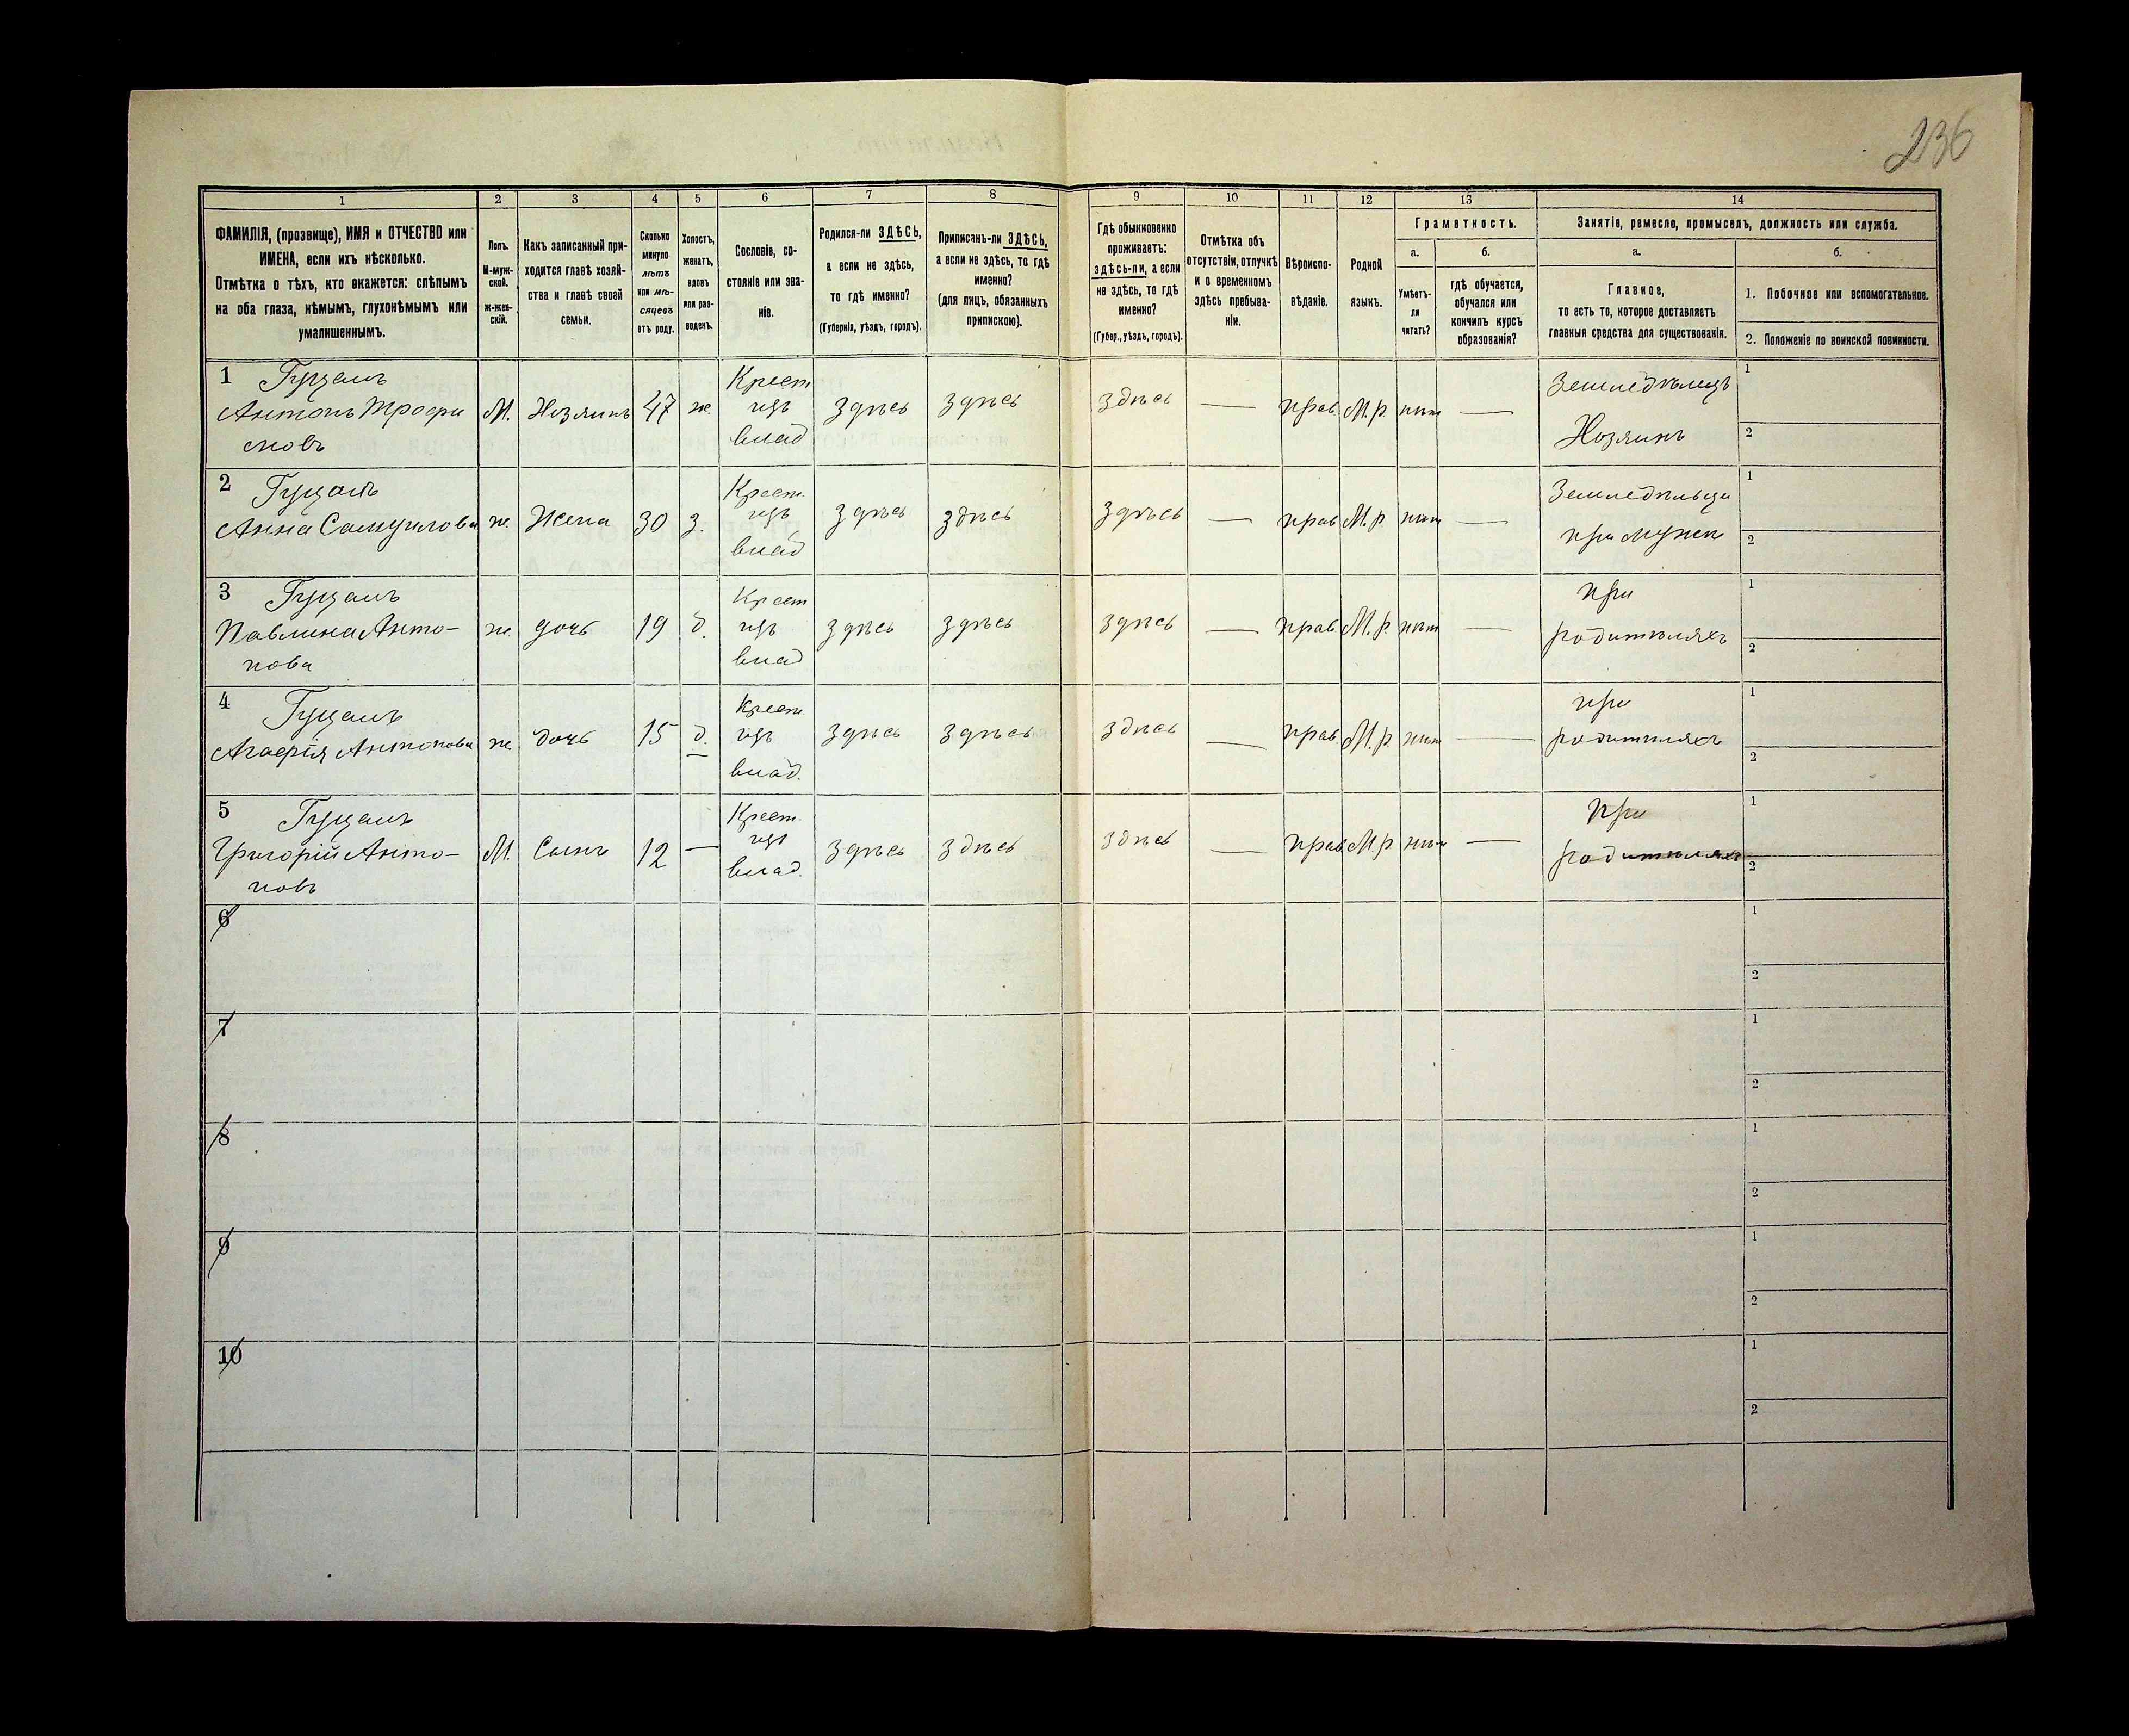 236
1 2 3 4 5 6 7 8 9 10 11 12 13 14
ФАМИЛІЯ, (прозвище), ИМЯ и ОТЧЕСТВО или
ИМЕНА, если ихъ нѣсколько.
Отмѣтка о тѣхъ, кто окажется: слѣпымъ
на оба глаза, нѣмымъ, глухонѣмымъ или
умалишеннымъ.
Полъ.
М-муж-
ской.
Ж-жен-
скій.
Какъ записанный при-
ходится главѣ хозяй-
ства и главѣ своей
семьи.
Сколько
минуло
лѣтъ
или мѣ-
сяцевъ
отъ роду.
Холостъ,
женатъ,
вдовъ
или раз-
веденъ.
Сословіе, со-
стояніе или зва-
ніе.
Родился-ли ЗДѢСЬ,
а если не здѣсь,
то гдѣ именно?
(Губернія, уѣздъ, городъ).
Приписанъ-ли ЗДѢСЬ,
а если не здѣсь, то гдѣ
именно?
(для лицъ, обязанныхъ
припискою).
Гдѣ обыкновенно
проживаетъ:
здѣсь-ли, а если
не здѣсь, то гдѣ
именно?
(Губер., уѣздъ, городъ).
Отмѣтка объ
отсутствіи, отлучкѣ
и о временномъ
здѣсь пребыва-
ніи.
Вѣроиспо-
вѣданіе.
Родной
языкъ.
Грамотность.
а.
Умѣетъ-
ли
читать?
б.
гдѣ обучается,
обучался или
кончилъ курсъ
образованія?
Занятіе, ремесло, промыселъ, должность или служба.
а.
Главное,
то есть то, которое доставляетъ
главныя средства для существованія.
б.
1. Побочное или вспомогательное.
2. Положеніе по воинской повинности.
1 Гуцалъ
Антонъ Трофи
мовъ
М.
Хозяинъ
47
ж
Крест
изъ
влад
здѣсь
здѣсь
здѣсь
—
прав.
М.р.
нѣт
—
Земледѣлецъ
Хозяинъ
1
2
2 Гуцалъ
Анна Самуилова
ж.
Жена
30
з.
Крест.
изъ
влад
здѣсь
здѣсь
здѣсь
—
прав
М.р.
нѣт
—
Земледѣльца
при мужѣ
1
2
3 Гуцалъ
Павлина Анто-
нова
ж.
дочь
19
д.
Крест
изъ
влад
здѣсь
здѣсь
здѣсь
—
прав.
М.р.
нѣт
—
при
родителяхъ
1
2
4 Гуцалъ
Агафія Антонова
ж.
дочь
15
д.
Крест.
изъ
влад.
здѣсь
здѣсь
здѣсь
—
прав.
М.р.
нѣт
—
при
родителяхъ
1
2
5 Гуцалъ
Григорій Анто-
новъ
М.
Сынъ
12
—
Крест.
изъ
влад.
здѣсь
здѣсь
здѣсь
—
прав
М.р
нѣт
—
При
родителяхъ
1
2
6
1
2
7
1
2
8
1
2
9
1
2
10
1
2